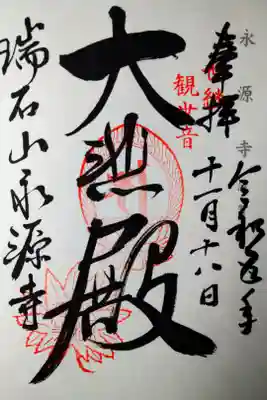 永源寺
奉拝
令和五年
十一月十八日
観世音
大悲殿
瑞石山永源寺